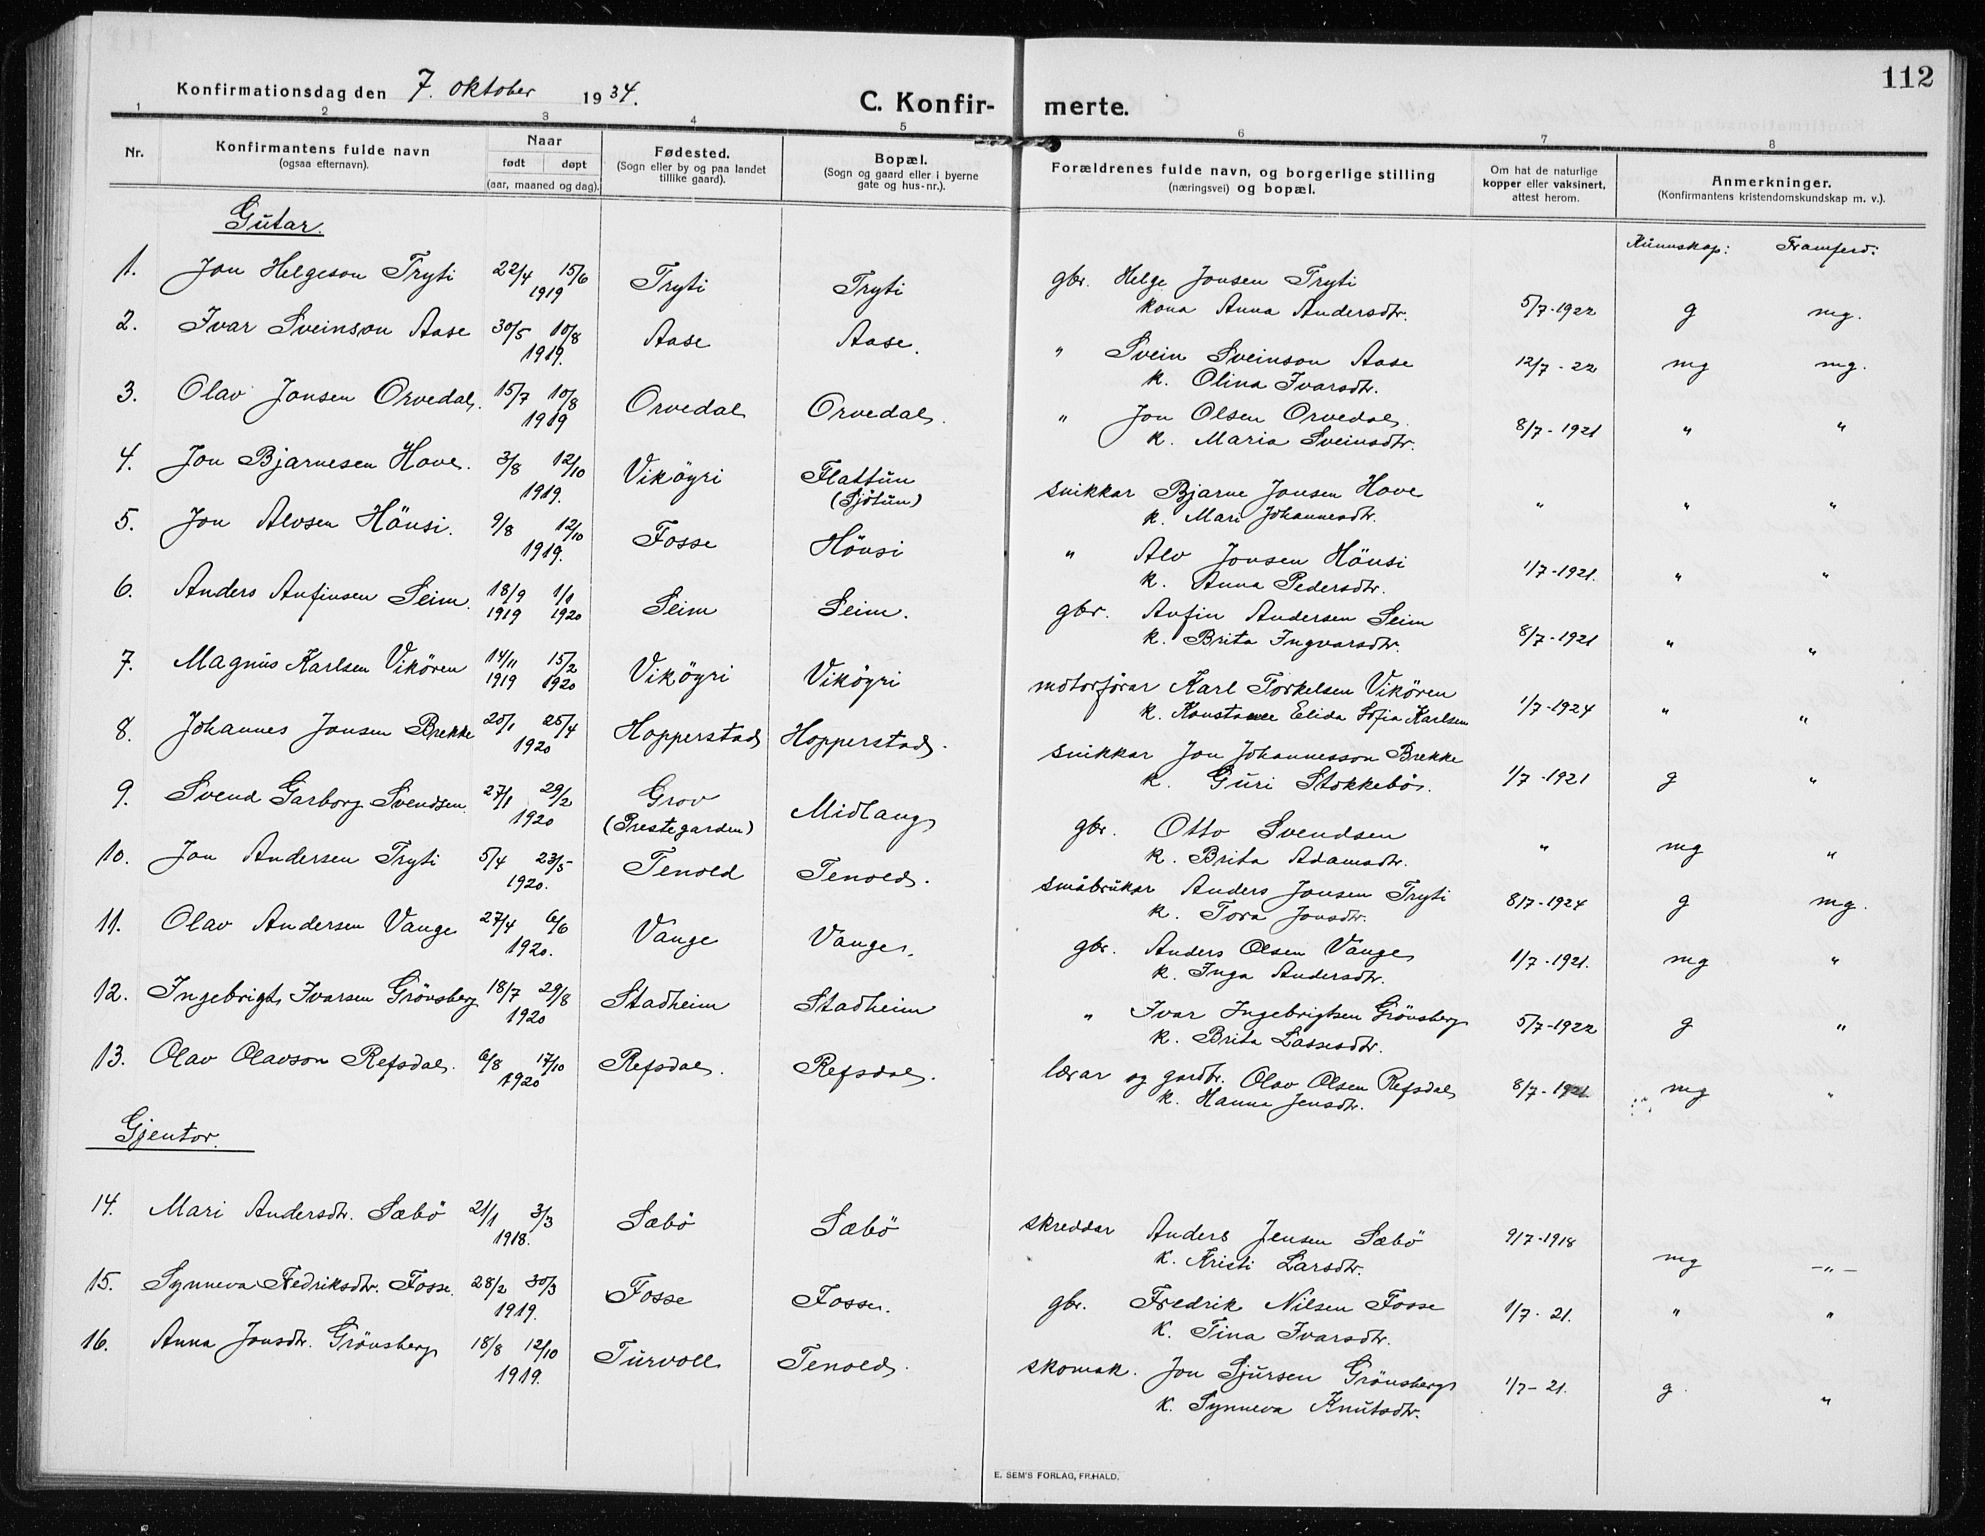 112
Konfirmationsdag den 7. oktober 1934.
C. Konfir- merte.
1 2 3 4 5 6 7 8
Nr.
Konfirmantens fulde navn
(ogsaa efternavn).
Naar
født døpt
(aar, maaned og dag).
Fødested.
(Sogn eller by og paa landet
tillike gaard).
Bopæl.
(Sogn og gaard eller i byerne
gate og hus-nr.).
Forældrenes fulde navn, og borgerlige stilling
(næringsvei) og bopæl.
Om hat de naturlige
kopper eller vaksinert,
attest herom.
Anmerkninger.
(Konfirmantens kristendomskundskap m. v.).
Gutar.
Kunnskap: Framferd:
1. Jon Helgeson Tryti 22/4 15/6 Tryti Tryti gbr. Helge Jonsen Tryti
1919 kona Anna Andersdtr. 5/7-1922 g mg.
2. Ivar Sveinson Aase 30/5 10/8 Aase Aase. " Svein Sveinson Aase
1919. k. Olina Ivarsdtr. 12/7-22 mg mg.
3. Olav Jonsen Orvedal. 15/7 10/8 Orvedal Orvedal. " Jon Olsen Orvedal.
1919 k. Maria Sveinsdtr. 8/7-1921 " "
4. Jon Bjarnesen Hove. 3/8 12/10 Vikøyri Flattun snikkar Bjarne Jonsen Hove
1919. (Sjøtun) k. Mari Johannesdtr. " " "
5. Jon Alvsen Hönsi. 9/8 12/10 Fosse Hönsi " Alv Jonsen Hönsi
1919. k. Anna Pedersdtr. 1/7-1921. " "
6. Anders Anfinsen Seim. 18/9 1/1 Seim Seim. gbr. Anfin Andersen Seim
1919 1920 k. Brita Ingvarsdtr. 8/7-1921 " "
7. Magnus Karlsen Vikören 14/11 15/2 Vikøyri Vikøyri motorförar Karl Torkelsen Vikören
1919 1920 k. Konstanse Elida Sofia Karlsen 1/7-1924 " "
8. Johannes Jonsen Brekke 20/1 25/4 Hopperstad Hopperstad. snikkar Jon Johannesson Brekke
1920 k. Guri Stokkebö. 1/7-1921 g "
9. Svend Garborg Svendsen. 27/1 29/2 Grov Midlang gbr. Otto Svendsen
1920 (Prestegarden) k. Brita Adamsdtr. " mg "
10. Jon Andersen Tryti 5/4 23/5 Tenold Tenold. småbrukar Anders Jonsen Tryti
1920. k. Tora Jonsdtr. 8/7-1924 g mg.
11. Olav Andersen Vange 27/4 6/6 Vange Vange. gbr. Anders Olsen Vange
1920. k. Inga Andersdtr. 1/7-1921. mg "
12. Ingebrigt Ivarsen Grönsberg 18/7 29/8 Stadheim Stadheim " Ivar Ingebrigtsen Grönsberg
1920 k. Brita Lassesdtr. 5/7-1922 g "
13. Olav Olavson Refsdal. 6/8 17/10 Refsdal. Refsdal. lærar og gardbr. Olav Olsen Refsdal
1920 k. Hanna Jensdtr. 8/7-1921 mg "
Gjentor.
14. Mari Andersdtr. Sæbö 21/1 3/3 Sæbö Sæbö skreddar Anders Jensen Sæbö 9/7-1918
1918. k. Kristi Larsdtr. mg -"-
15. Synneva Fedriksdtr. Fosse. 28/2 30/3 Fosse Fosse. gbr. Fredrik Nilsen Fosse 1/7-21. " "
1919. k. Tina Ivarsdtr.
16. Anna Jonsdtr. Grönsberg 18/8 12/10 Turvoll Tenold. skomak. Jon Sjursen Grönsberg 1/7-21. g. "
1919. k. Synneva Knutsdtr.
E. SEM'S FORLAG, FR.HALD.